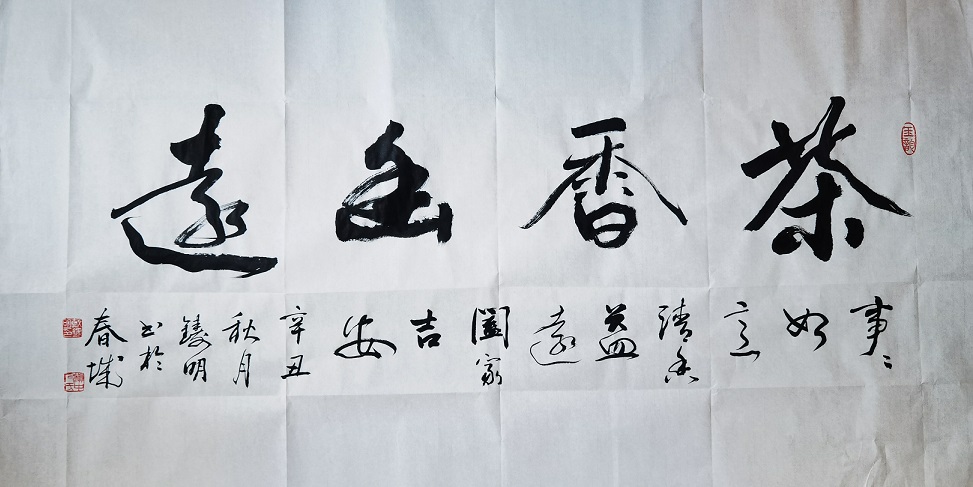 茶香幽遠
事〻如意清香益遠闔家吉安辛丑秋月鑄明书於春城